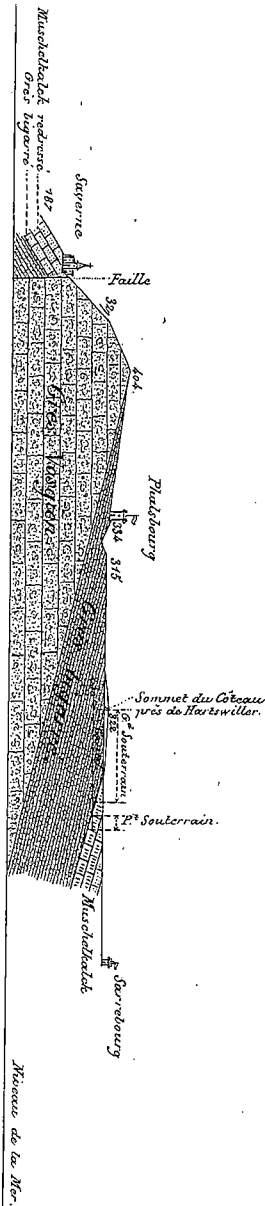 Muschelkalck redressé
Grès bigarré
187
Saverne
Faille
404
Grès Vosgien
Phalsbourg
334
315
Grès bigarré
Sommet du Côteau
près de Hartswiller.
G.d Souterrain
P.t Souterrain.
Muschelkalck
Sarrebourg
Niveau de la Mer.